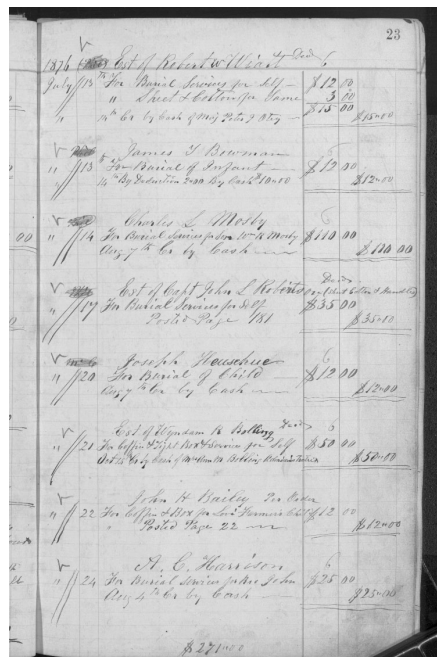 23
1876 Est of Robert W Wiatt Decd
July 13th For Burial Services for Self $12 00
" Sheet & Cotton for Same 3 00
$15 00
Cr by Cash of Maj Peter J Otey $15.00
" 13 James Y Bowman
For Burial of Infant $12 00
14th By Deduction 2.00 By Cash 10.00 $12.00
Charles L Mosby
" 14 For Burial Services for Son Wm K Mosby $110 00
Aug 7th Cr by Cash $110 00
Est of Capt John L Roberts Decd
" 17 For Burial Services for Self $35 00
Posted Page 181 $35.00
Joseph
" 20 For Burial of Child $12 00
Aug 7th Cr by Cash $12.00
Est of Wyndam R Bolling Decd
" 21 For Coffin & Light Box & Services for Self $50 00
Cr by Cash of Bolling $50.00
John H Bailey Per Order
" 22 For Coffin & Box for Child $12 00
" Posted Page 22 $12.00
A. C. Harrison
" 24 For Burial Services for John $25 00
Aug 4th Cr by Cash $25.00
$271.00